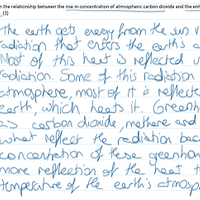 n the relationship between the rise in concentration of atmospheric carbon dioxide and the enh
(3)
The earth gets energy from the sun v
radiation that enters the earth's a
Most of this heat is reflected u
radiation. Some of this radiation
atmosphere, most of it is reflecte
earth, which heats it. Greenh
as carbon dioxide, methane and
what reflect the radiation bac
concentration of these greenhou
more reflection of the heat t
temperature of the earth's atmosp